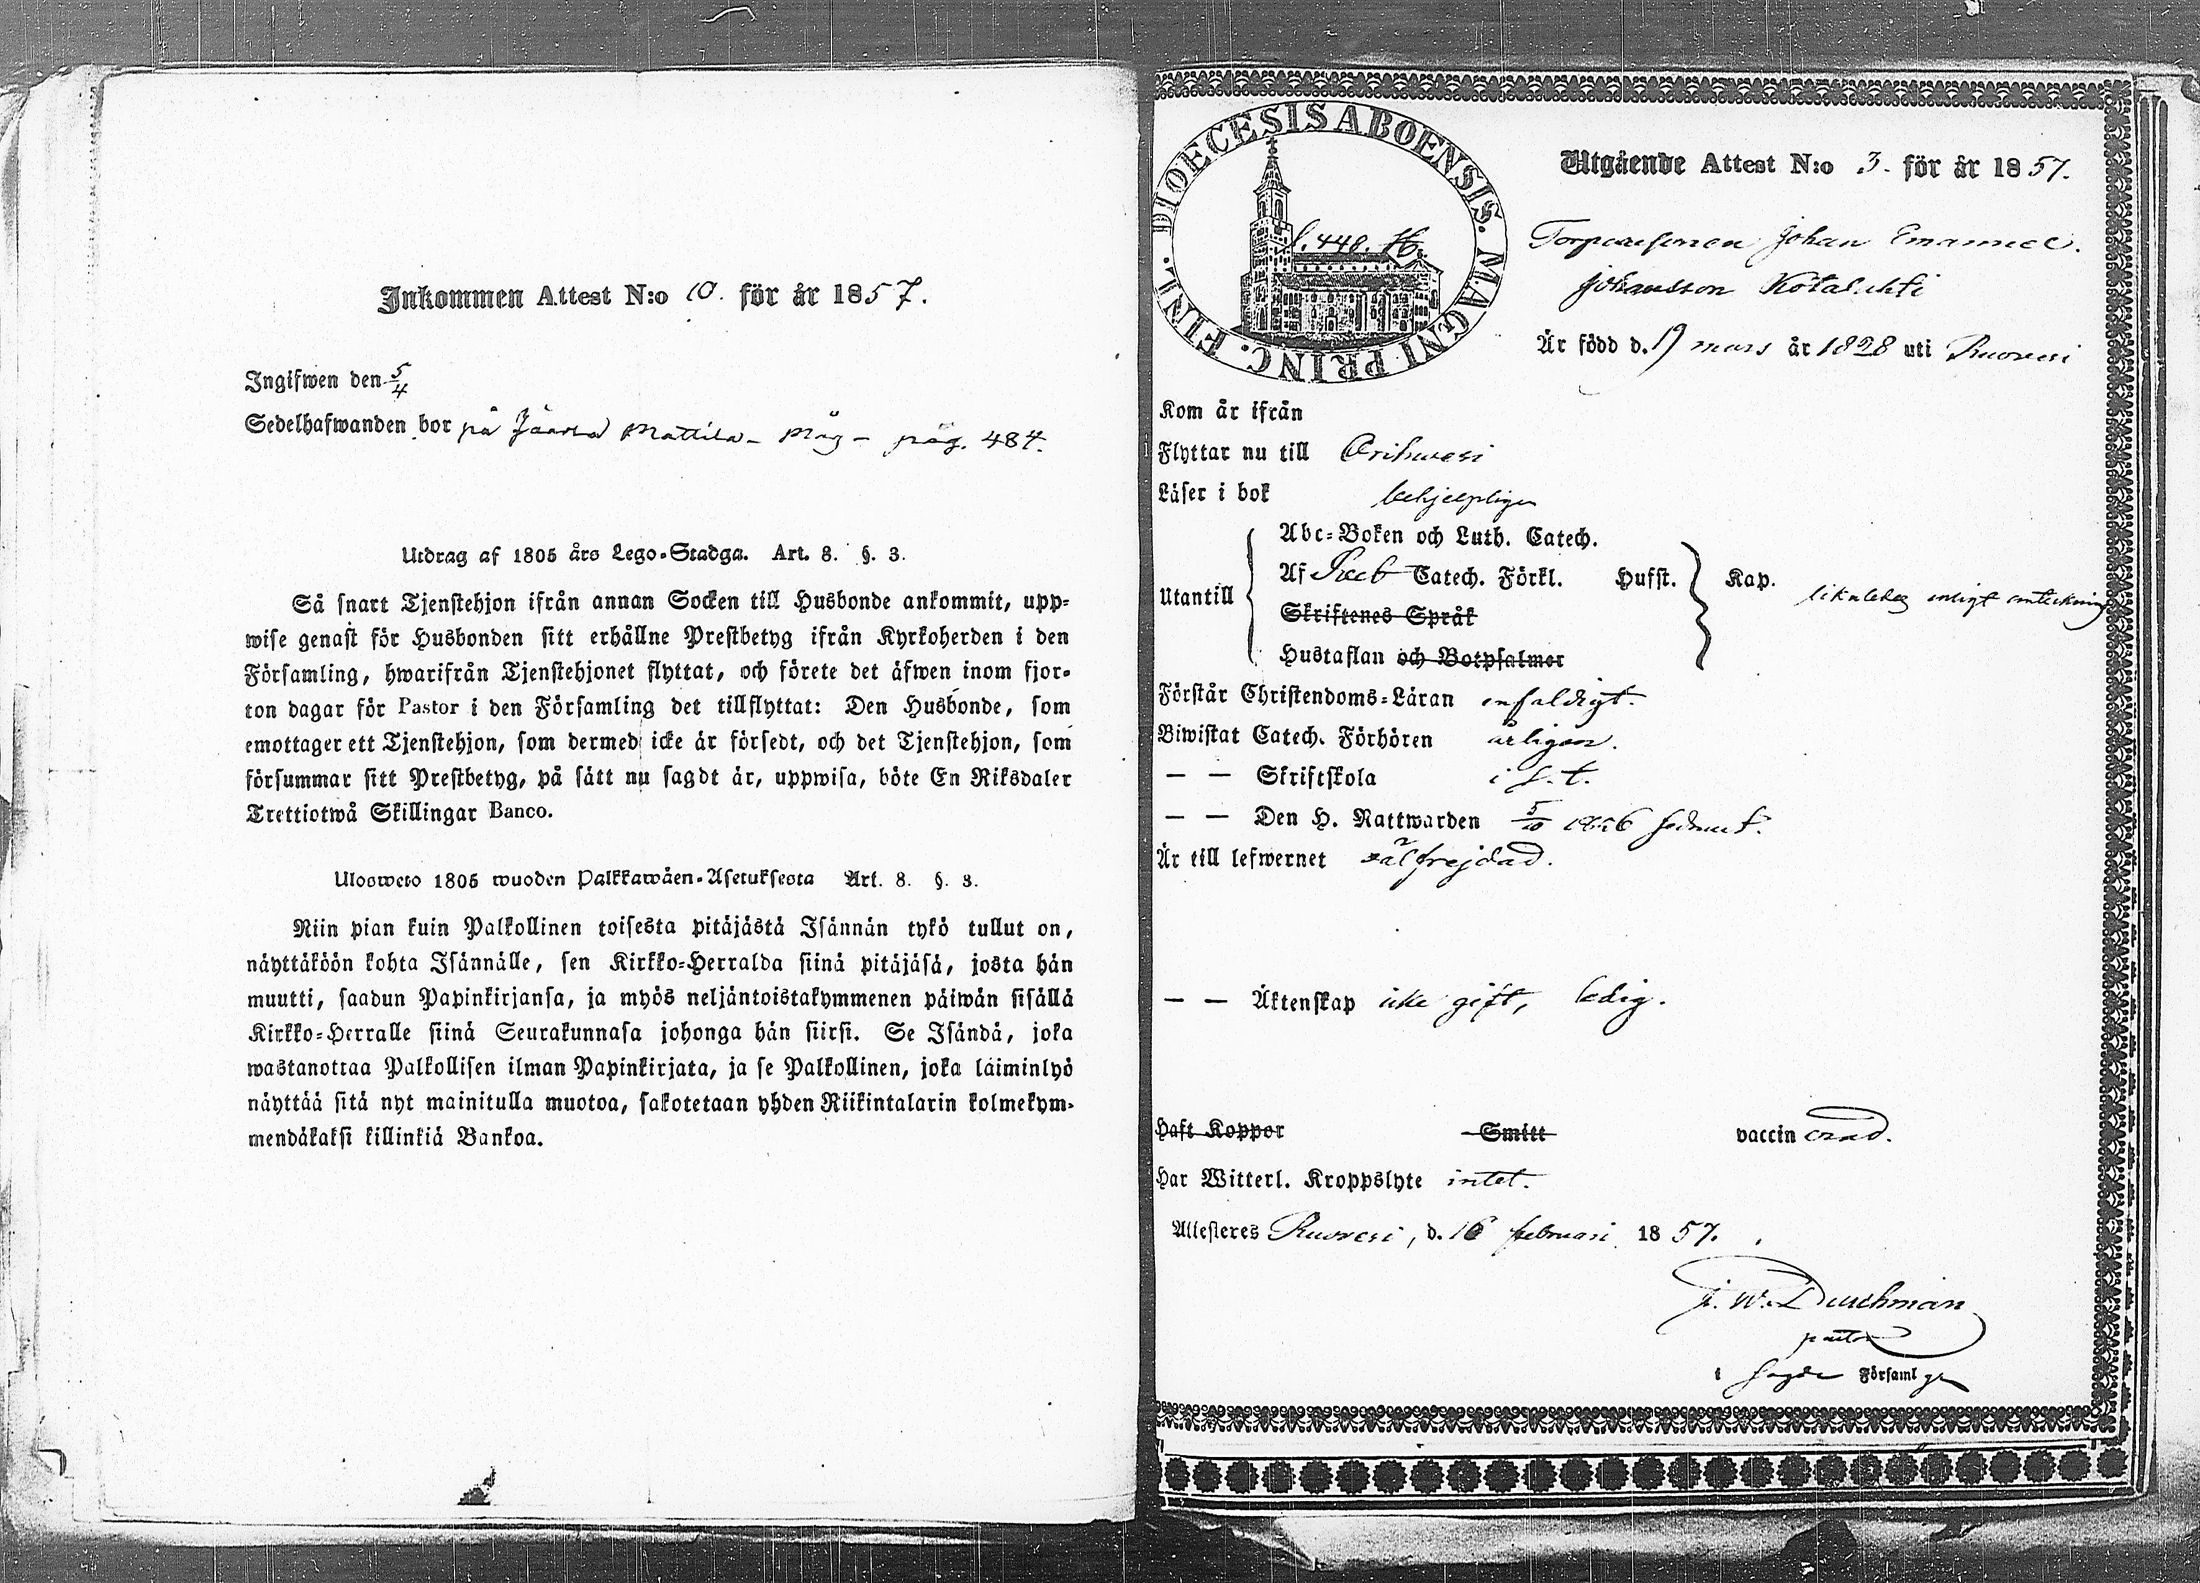 Inkommen Attest N:o 10. för år 1857.
Ingifwen den 5/4
Sedelhafwanden bor på Mattila - Måg - pag. 484.
Utdrag af 1805 års Lego-Stadga. Art. 8. §. 3.
Så snart Tjenstehjon ifrån annan Socken till Husbonde ankommit, upp-
wise genast för Husbonden sitt erhållne Prestbetyg ifrån Kyrkoherden i den
Församling, hwarifrån Tjenstehjonet flyttat, och förete det äfwen inom fjor-
ton dagar för Pastor i den Församling det tillflyttat: Den Husbonde, som
emottager ett Tjenstehjon, som dermed icke är försedt, och det Tjenstehjon, som
försummar sitt Prestbetyg, på sätt nu sagdt är, uppwisa, böte En Riksdaler
Trettiotwå Skillingar Banco.
Ulosweto 1805 wuoden Palkkawäen-Asetuksesta Art. 8. §. 3.
Niin pian kuin Palkollinen toisesta pitäjästä Isännän tykö tullut on,
näyttäköön kohta Isännälle, sen Kirkko-Herralda siinä pitäjäsä, josta hän
muutti, saadun Papinkirjansa, ja myös neljäntoistakymmenen päiwän sisällä
Kirkko-Herralle siinä Seurakunnasa johonga hän siirsi. Se Isändä, joka
wastanottaa Palkollisen ilman Papinkirjata, ja se Palkollinen, joka laiminlyö
näyttää sitä nyt mainitulla muotoa, sakotetaan yhden Riikintalarin kolmekym-
mendäkaksi killinkiä Bankoa.
DIOECESIS ABOENSIS. MAGNI PRINC. FINL.
S. 448.
Utgående Attest N:o 3. för år 1857.
Torparesonen Johan Emanuel
Johansson Kotalahti
Är född d. 19 mars år 1828 uti Ruovesi
Kom år ifrån
Flyttar nu till Orihwesi
Läser i bok behjelpligen
Abc-Boken och Luth. Catech.
Utantill Af Catech. Förkl. Husst. Kap. likaledes enligt anteckning
Skriftenes Språk
Hustaflan och Botpsalmer
Förstår Christendoms-Läran enfaldigt.
Biwistat Catech. Förhören årligen.
— — Skriftskola i s. t.
— — Den H. Nattwarden 5/10 1856 sednast.
Är till lefwernet välfrejdad.
— — Äktenskap icke gift, ledig.
Haft Koppor Smitt vaccinerad.
Har Witterl. Kroppslyte intet.
Attesteres Ruovesi, d. 16 februari 1857.
J. W. Durchman
pastor
i sagde Församl gr